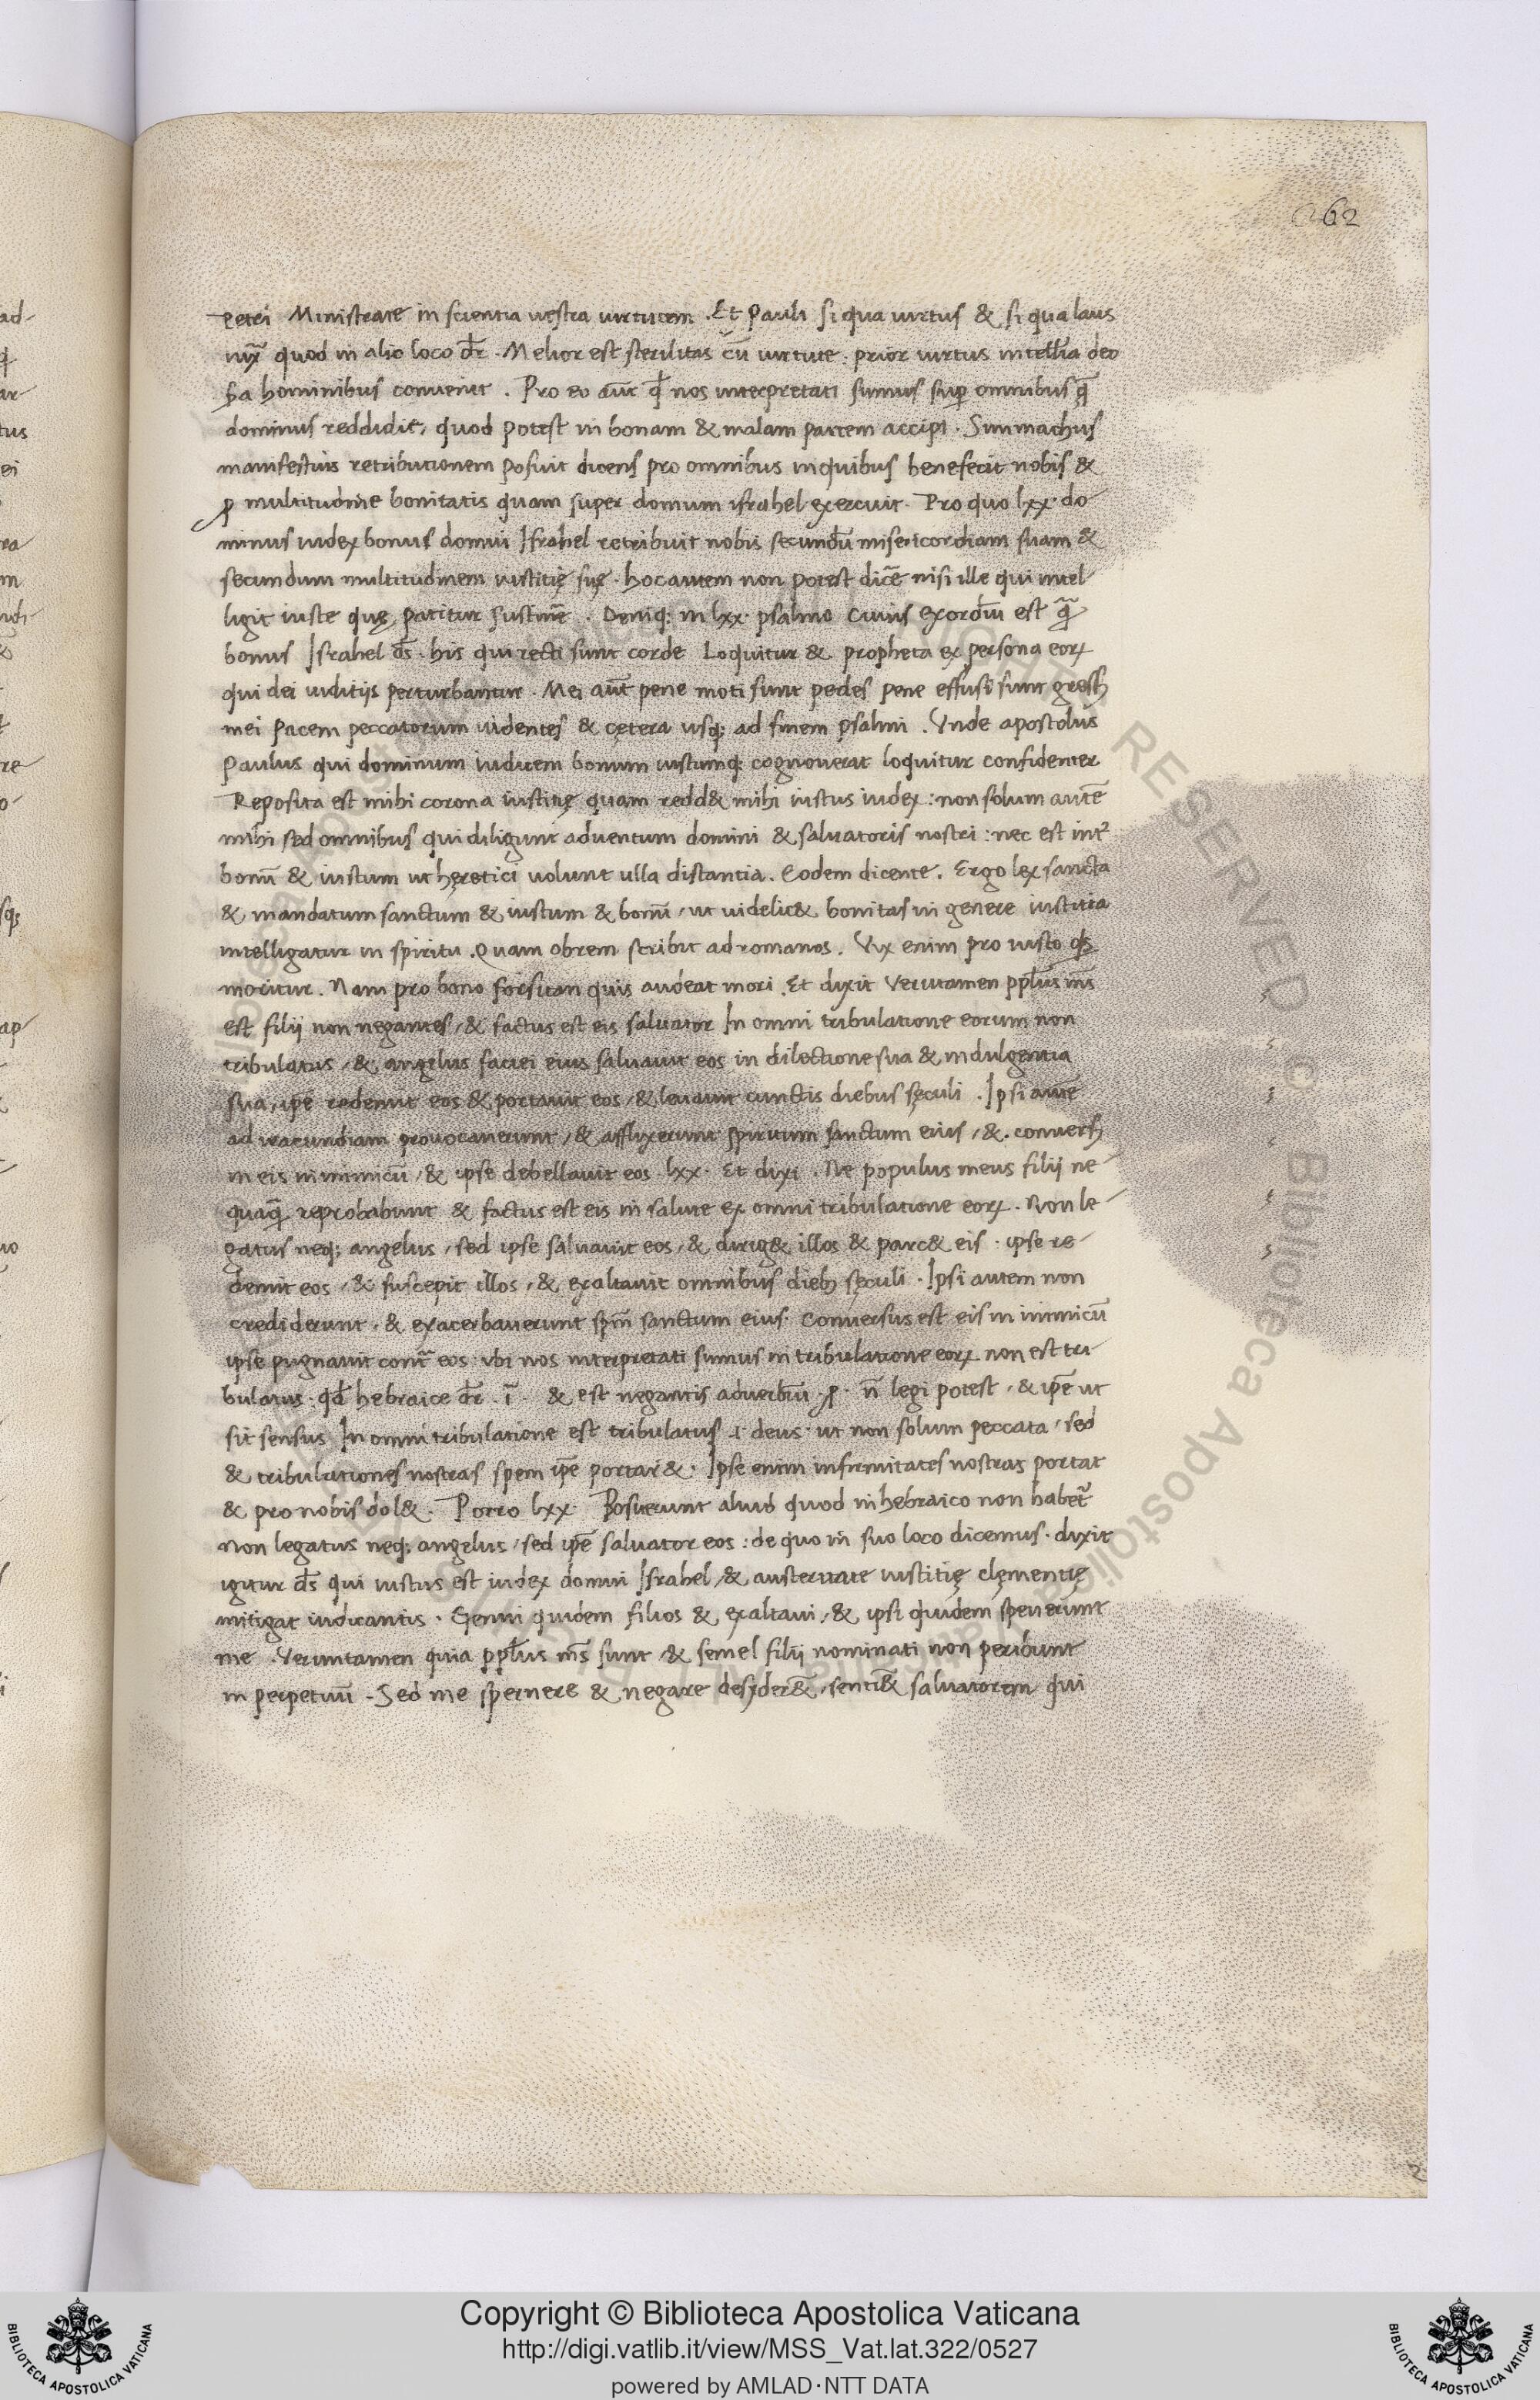 262
Petri Ministrate in scientia uestra uirtutem . Et Pauli si qua uirtus & si qua laus
iux̄ quod in alio loco dr̄ . Melior est sterilitas cū uirtute : prior uirtus intellīa deo
hominibus conuenit . Pro eo aūt qd̄ nos interpretati sumus sup omnibus q̄
dominus reddidit, quod potest in bonam & malam partem accipi . Simmachus
manifestius retributionem posuit dicens pro omnibus in quibus benefecit nobis &
ꝓ multitudine bonitatis quam super domum israhel exercuit . Pro quo lxx · do
minus iudex bonus domui Israhel retribuit nobis secundū misericordiam suam &
secundum multitudinem iustitię suę . hoc autem non potest dicē nisi ille qui intel
ligit iuste quę patitur sustinē . Deniq; in lxx · psalmo cuius exordiū est q̄
bonus Israhel ds̄ . his qui recti sunt corde Loquitur & propheta ex persona eoꝝ
qui dei iuditijs perturbantur . Mei aūt pene moti sunt pedes pene effusi sunt gress
mei pacem peccatorum uidentes & cętera usq; ad finem psalmi . Vnde apostolus
Paulus qui dominum iudicem bonum iustumq; cognouerat loquitur confidenter
Reposita est mihi corona iustitię quam redd& mihi iustus iudex : non solum autē
mihi sed omnibus qui diligunt aduentum domini & saluatoris nostri : nec est int̄
bonū & iustum ut hęretici uolunt ulla distantia . Eodem dicente . Ergo lex sancta
& mandatum sanctum & iustum & bonū, ut uidelic& bonitas in genere iustitia
intelligatur in spiritu . Quam obrem scribit ad romanos . Vix enim pro iusto qs
moritur . Nam pro bono forsitan quis audeat mori . Et dixit Veruntamen ppłus ms̄
est filij non negantes, & factus est eis saluator In omni tribulatione eorum non
tribulatus, & angelus faciei eius saluauit eos in dilectione sua & indulgentia
sua, ipē redemit eos & portauit eos, & leuauit cunctis diebus sęculi . Ipsi autē
ad iracundiam prouocauerunt, & afflixerunt spiritum sanctum eius, & . conuers
in eis inimicū, & ipse debellauit eos . lxx . Et dixi . Ne populus meus filij ne
quaq̄ reprobabunt & factus est eis in salute ex omni tribulatione eoꝝ . Non le
gatus neq; angelus, sed ipse saluauit eos, & dirig& illos & parc& eis . ipse re
demit eos, & suscepit illos, & exaltauit omnibus dieb; sęculi . Ipsi autem non
crediderunt . & exacerbauerunt spm̄ sanctum eius . Conuersus est eis in inimicū
ipse pugnauit cont̄ eos : ubi nos interpretati sumus in tribulatione eoꝝ non est tri
bulatus . qd̄ hebraice dr̄ . & est negantis aduerbiū ꝓ . n̄ legi potest, & ipē ut
sit sensus In omni tribulatione est tribulatus .i. deus . ut non solum peccata, sed
& tribulationes nostras spem ipē portar& . Ipse enim infirmitates nostras portat
& pro nobis dol& . Porro lxx . Posuerunt aliud quod in hebraico non habet̄
Non legatus neq; angelus, sed ipē saluator eos : de quo in suo loco dicemus . dixit
igitur ds̄ qui iustus est iudex domui Israhel, & austeritate iustitię clęmentię
mitigat iudicantis . Genui quidem filios & exaltaui, & ipsi quidem spreuerunt
me . Veruntamen quia ppłus ms̄ sunt, & semel filij nominati non peribunt
in perpetuū . Sed me spernere & negare desyder&̄, senti&̄ saluatorem qui
Copyright © Biblioteca Apostolica Vaticana
http://digi.vatlib.it/view/MSS_Vat.lat.322/0527
powered by AMLAD·NTT DATA